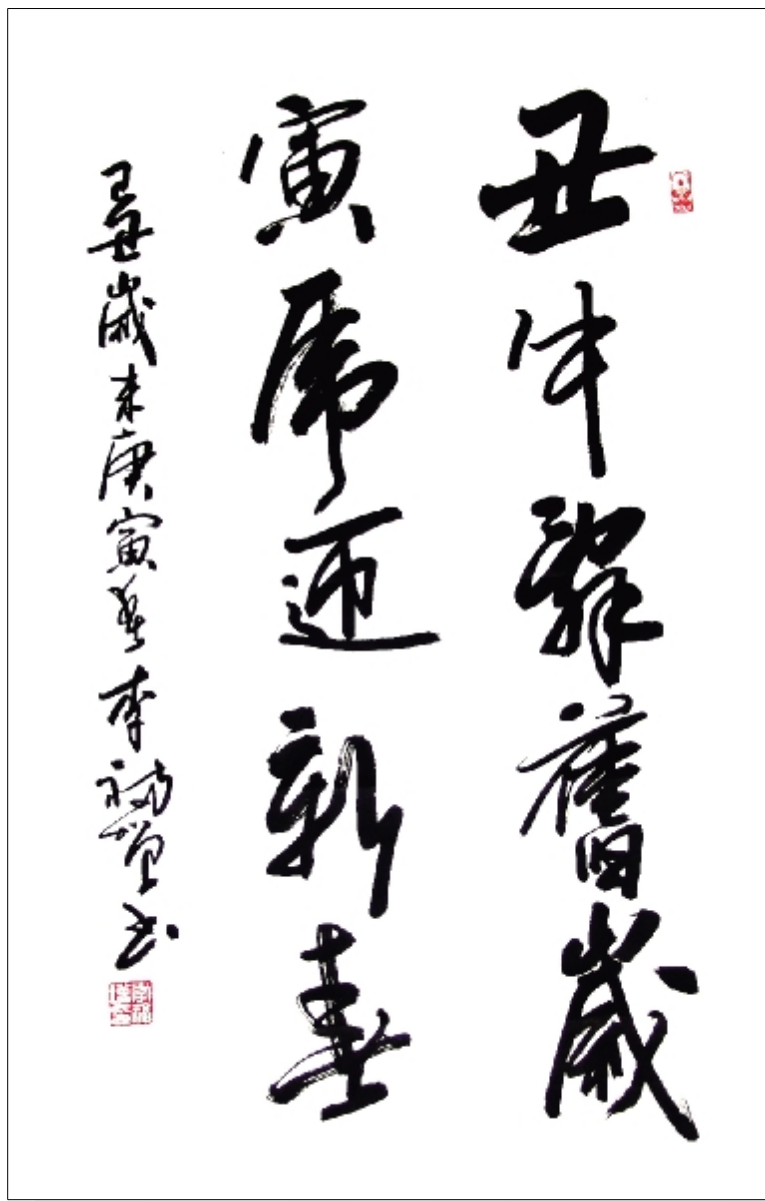 丑牛辭舊歲
寅虎迎新春
己丑歲末庚寅年李福賢书